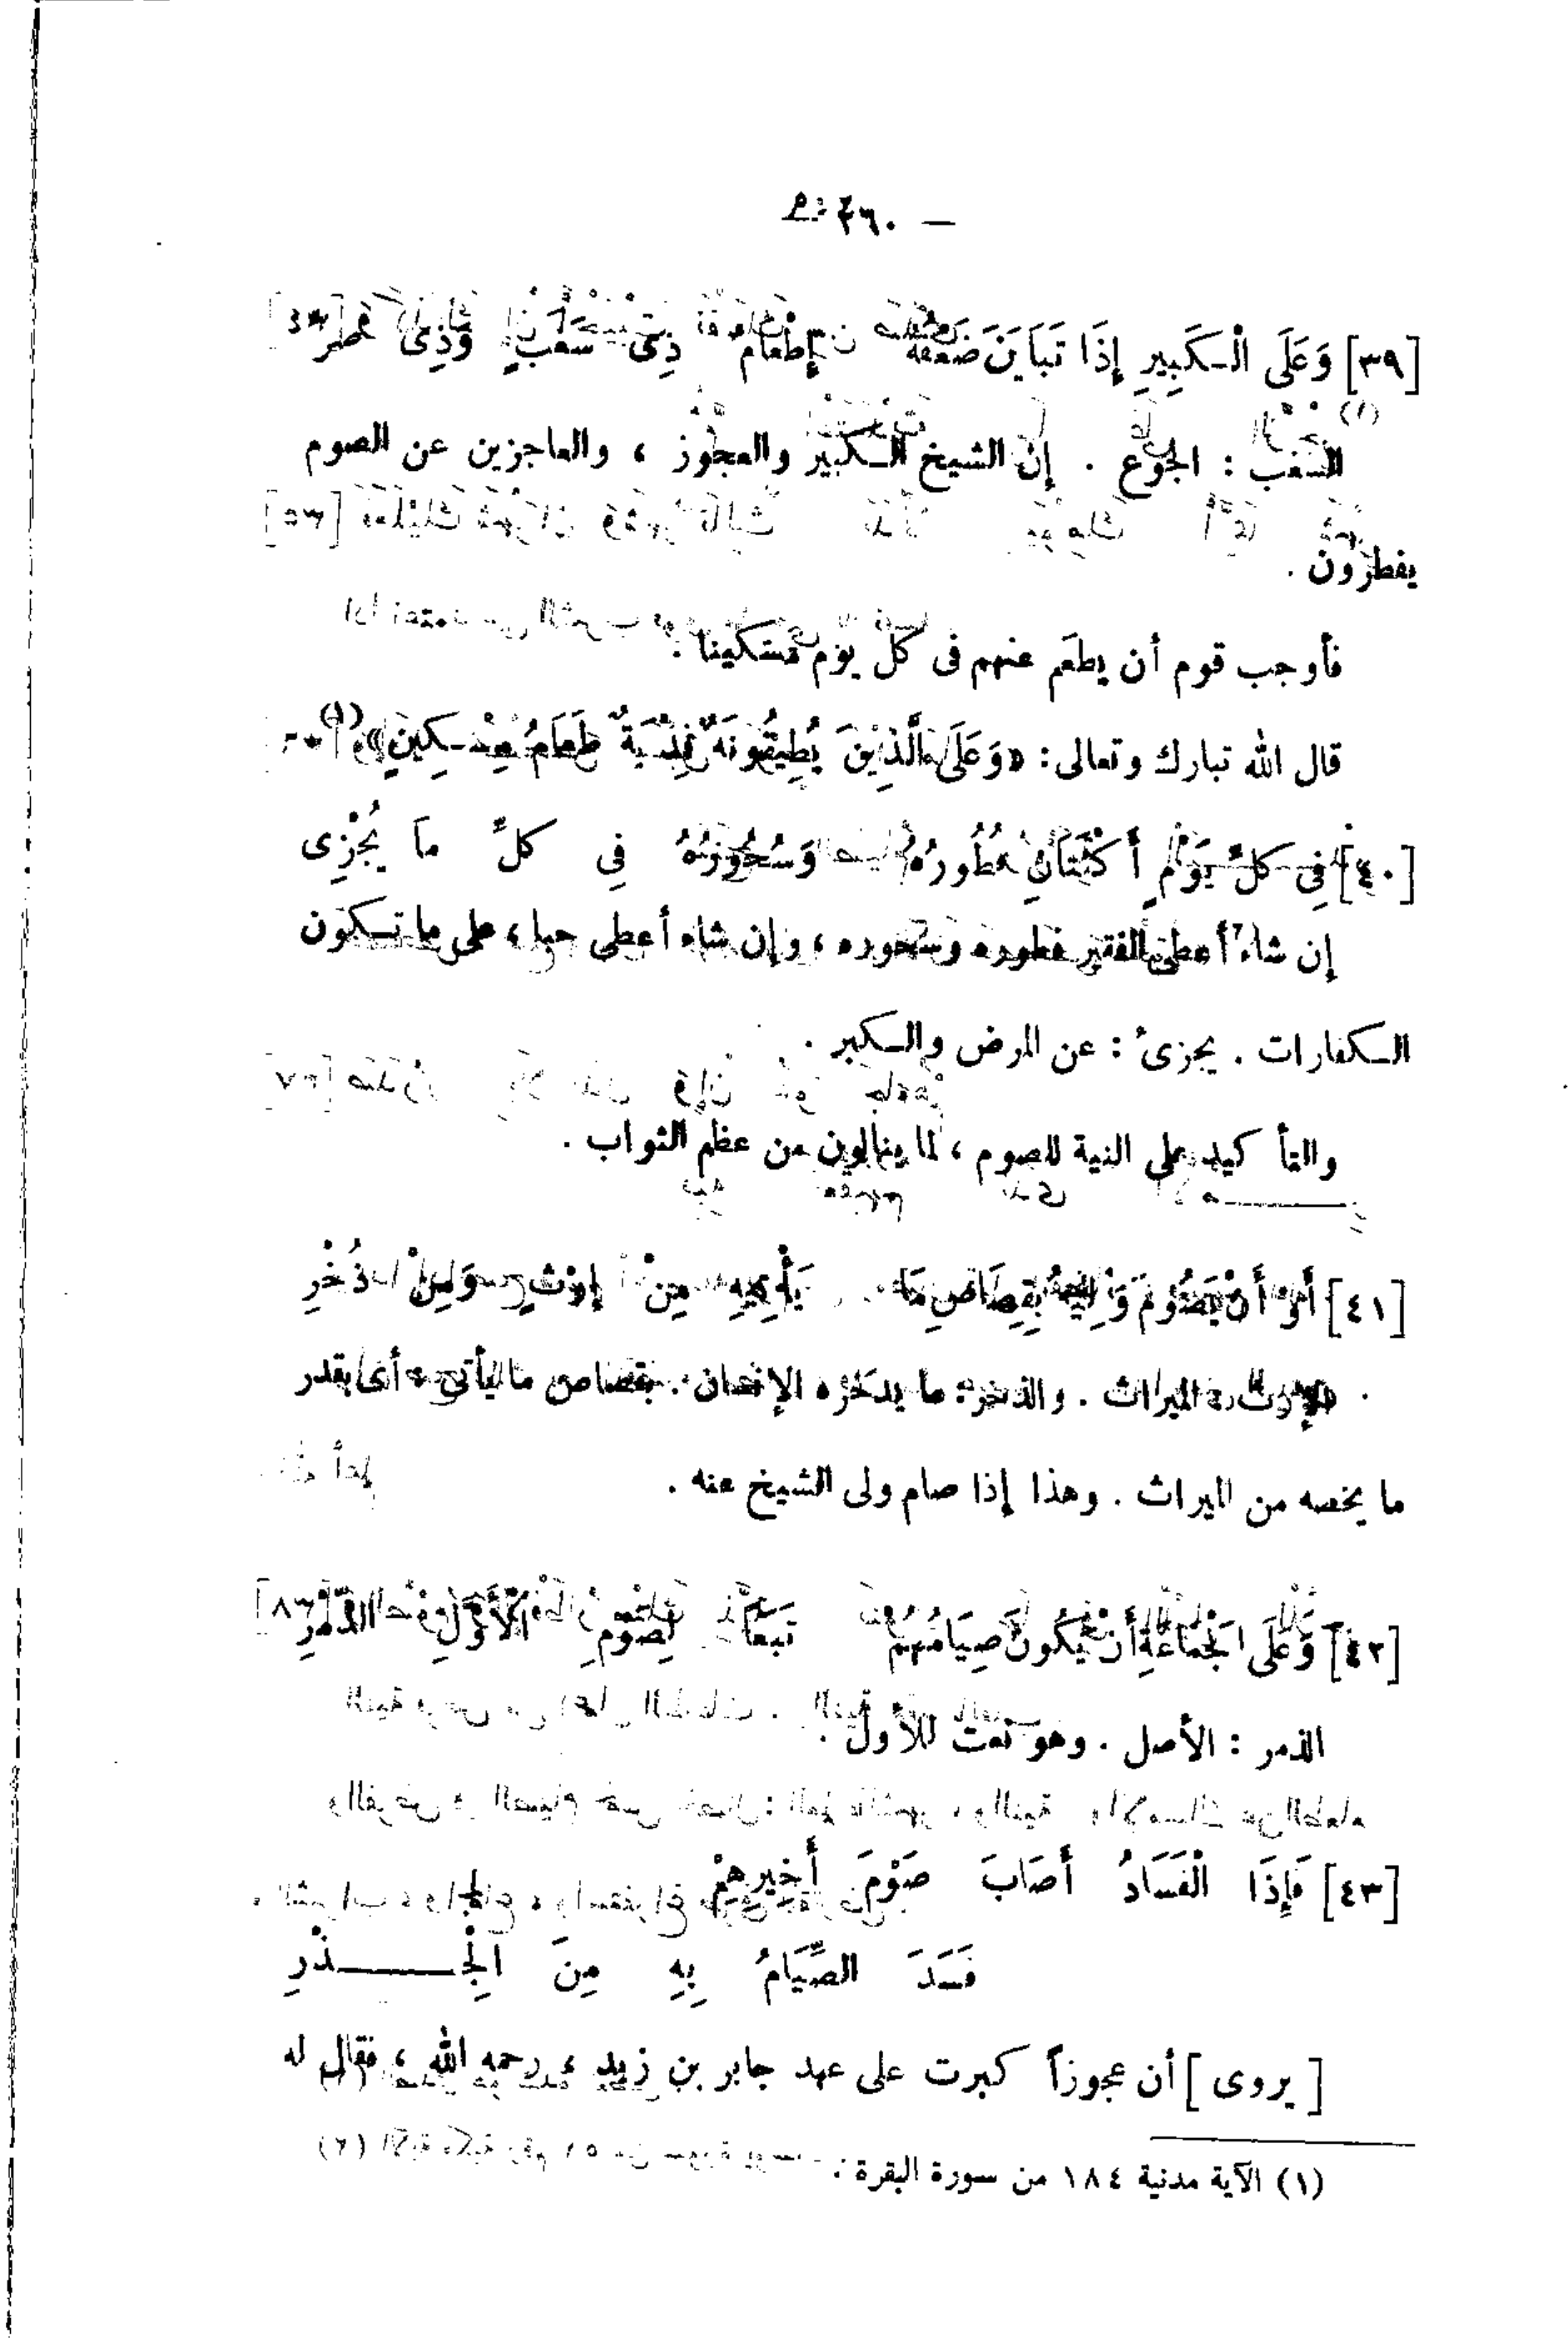 — ٢٦٠ —
[٣٩] وَعَلَى الْكَبِيرِ إِذَا تَبَايَنَ ضَعْفُهُ إِطْعَامُ ذِى سَغَبٍ وَذِى
السغب : الجوع . إن الشيخ الكبير والعجوز ، والعاجزين عن الصوم
يفطرون .
فأوجب قوم أن يطعَم عنهم فى كل يوم مسكينا .
قال الله تبارك وتعالى : «وَعَلَى الَّذِينَ يُطِيقُونَهُ فِدْيَةٌ طَعَامُ مِسْكِينٍ» (١)
[٤٠] فِى كلِّ يَوْمٍ أَكْلَتَانِ فُطُورُهُ وَسُحُورُهُ فِى كلِّ مَا يُجْزِى
إن شاء أعطى الفقير فطوره وسحوره ، وإن شاء أعطى حبا ، على ما تكون
الكفارات . يجزىُ : عن المرض والكبر .
والتأكيد على النية للصوم ، لما ينالون من عظم الثواب .
[٤١] أَوْ أَنْ يَصُومَ وَلِيُّهُ بِقِصَاصِ مَا يَأْتِيهِ مِنْ إِرْثٍ وَمِنْ ذُخْرِ
الإرث : الميراث . والذخر : ما يدخره الإنسان . بقصاص ما يأتى ، أى بقدر
ما يخصه من الميراث . وهذا إذا صام ولى الشيخ عنه .
[٤٢] وَعَلَى الْجَمَاعَةِ أَنْ يَكُونَ صِيَامُهُمْ تَبَعًا لِصَوْمِ الْأَوَّلِ الذِّمْرِ
الذمر : الأصل . وهو نعت للأول .
[٤٣] فَإِذَا الْفَسَادُ أَصَابَ صَوْمَ أَخِيرِهِمْ
فَسَدَ الصِّيَامُ بِهِ مِنَ الْجِــــذْرِ
[ يروى ] أن عجوزاً كبرت على عهد جابر بن زيد ، رحمه الله ، فقال له
(١) الآية مدنية ١٨٤ من سورة البقرة .